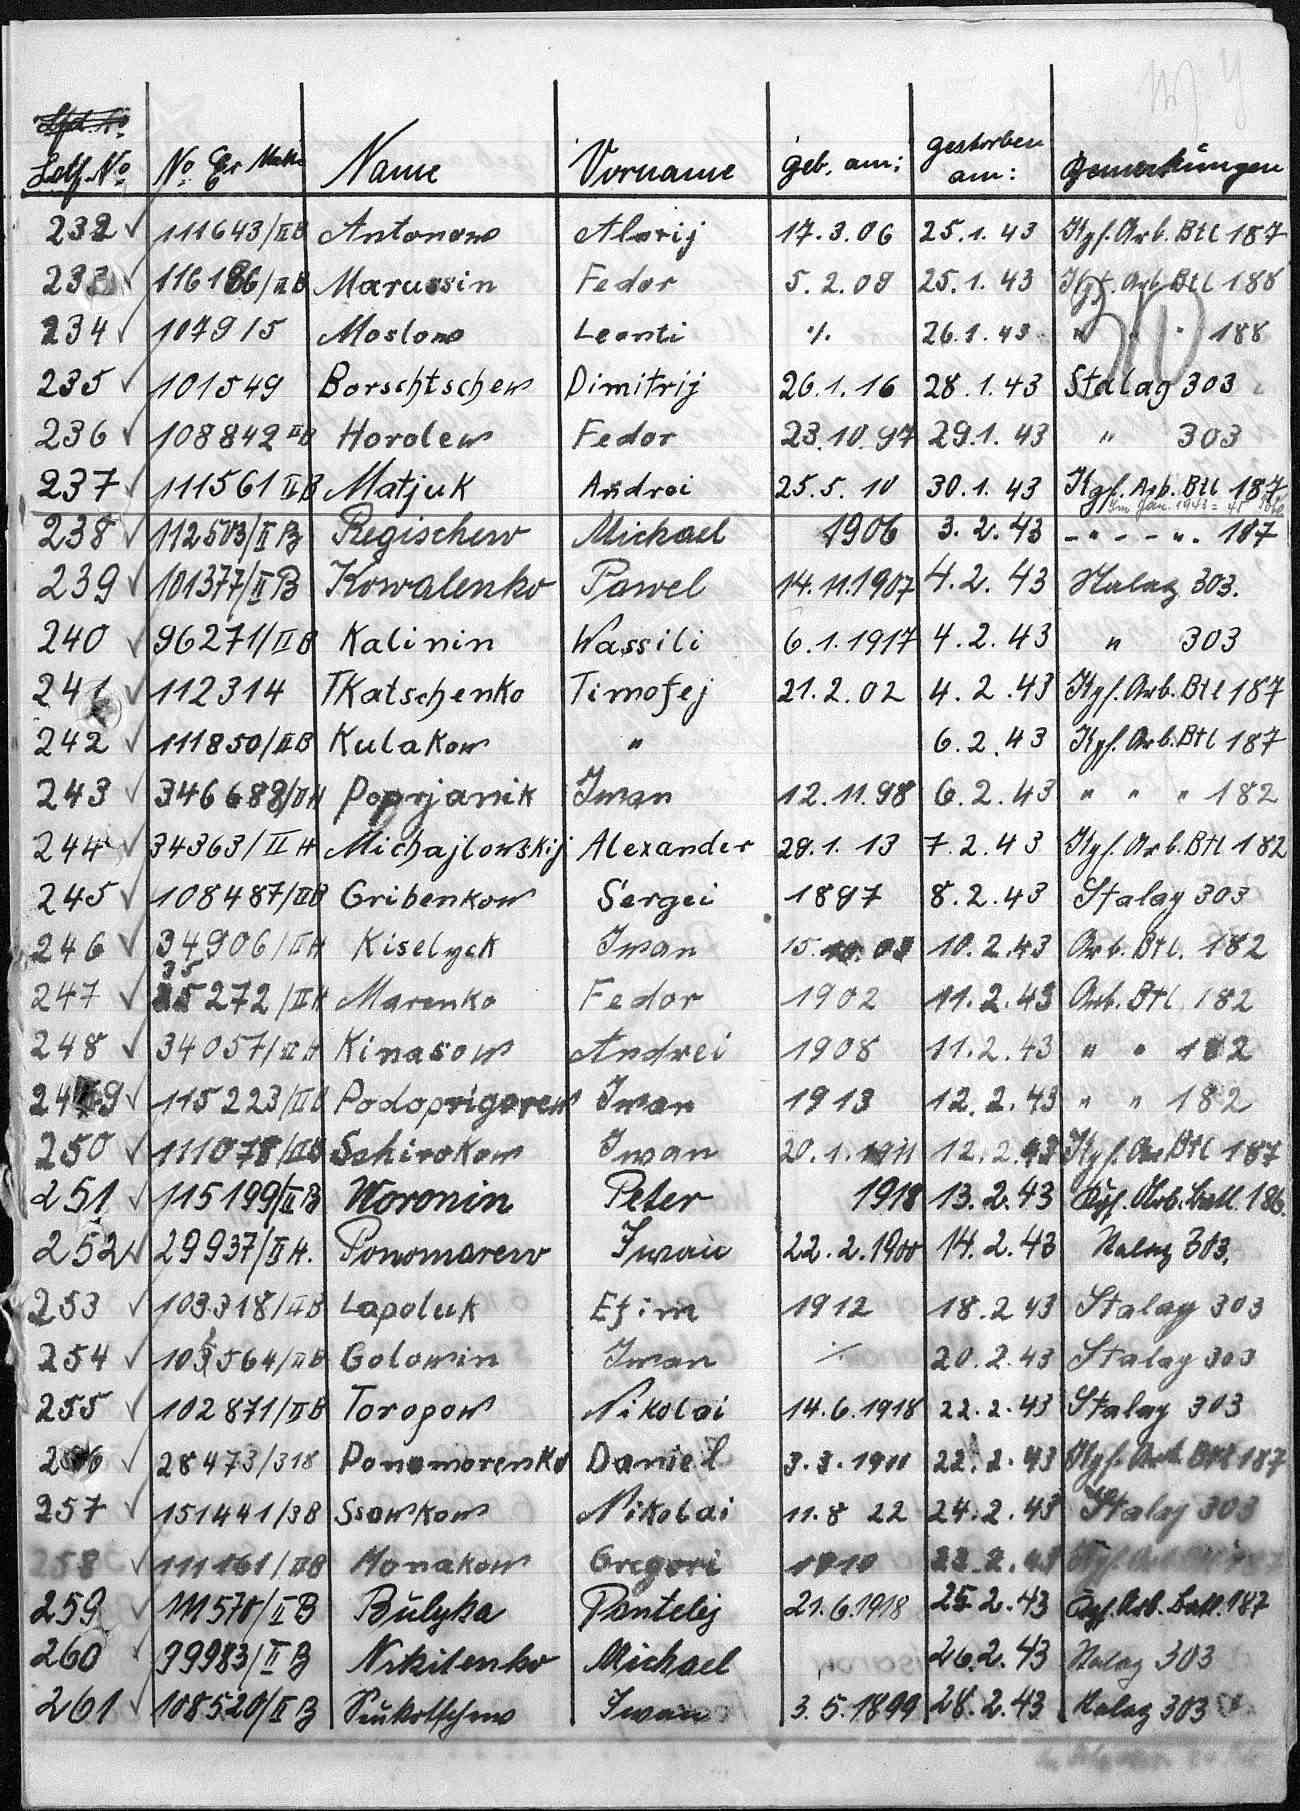 Lfd. No
Lauf. No No Er. Marke Name Vorname geb. am: gestorben am: Bemerkungen
232 ✓ 111643/IIB Antonow Alexij 17.3.06 25.1.43 Kgf. Arb. Btl 187
233 ✓ 116186/IIB Marussin Fedor 5.2.09 25.1.43 Kgf. Arb. Btl 188
234 ✓ 107915 Moslow Leonti ./. 26.1.43 " " " 188
235 ✓ 101549 Borschtschew Dimitrij 26.1.16 28.1.43 Stalag 303
236 ✓ 108842 IIB Horolew Fedor 23.10.97 29.1.43 " 303
237 ✓ 111561 IIB Matjuk Andrei 25.5.10 30.1.43 Kgf. Arb. Btl 187
Im Jan. 1943 = 45 Tote
238 ✓ 112503/IIB Regischew Michael 1906 3.2.43 - " - - " . 187
239 ✓ 101377/IIB Kowalenko Pawel 14.11.1907 4.2.43 Stalag 303.
240 ✓ 96271/IIB Kalinin Wassili 6.1.1917 4.2.43 " 303
241 ✓ 112314 Tkatschenko Timofej 21.2.02 4.2.43 Kgf. Arb. Btl 187
242 ✓ 111850/IIB Kulakow " 6.2.43 Kgf. Arb. Btl 187
243 ✓ 346688/IIH Poprjanik Iwan 12.11.98 6.2.43 " " " 182
244 ✓ 34363/IIH Michajlowskij Alexander 29.1.13 7.2.43 Kgf. Arb. Btl 182
245 ✓ 108487/IIB Gribenkow Sergei 1897 8.2.43 Stalag 303
246 ✓ 34906/IIH Kiselyck Iwan 15.10.03 10.2.43 Arb. Btl. 182
247 ✓ 35272/IIH Marenko Fedor 1902 11.2.43 Arb. Btl. 182
248 ✓ 34057/IIH Kinasow Andrei 1908 11.2.43 " " 182
249 ✓ 115223/IIB Podoprigorew Iwan 1913 12.2.43 " " 182
250 ✓ 111078/IIB Schirokow Iwan 20.1.1911 12.2.43 Kgf. Arb Btl 187
251 ✓ 115199/IIB Woronin Peter 1918 13.2.43 Kgf. Arb. Batl. 186.
252 ✓ 29937/IIH. Ponomarew Iwan 22.2.1900 14.2.43 Stalag 303.
253 ✓ 103318/IIB Lapoluk Efim 1912 18.2.43 Stalag 303
254 ✓ 103564/IIB Golowin Iwan ./. 20.2.43 Stalag 303
255 ✓ 102871/IIB Toropow Nikolai 14.6.1918 22.2.43 Stalag 303
256 ✓ 28473/318 Ponomorenko Daniel 3.3.1911 22.2.43 Kgf. Arb. Btl 187
257 ✓ 151441/3B Ssowkow Nikolai 11.8 22 24.2.43 Stalag 303
258 ✓ 111161/IIB Monakow Gregori 1910 22.2.43
259 ✓ 111570/IIB Bulyka Pantelej 21.6.1918 25.2.43 Kgf. Arb. Batl. 187
260 ✓ 99983/IIB Nikitenko Michael 26.2.43 Stalag 303
261 ✓ 108520/IIB Iwan 3.5.1899 28.2.43 Stalag 303